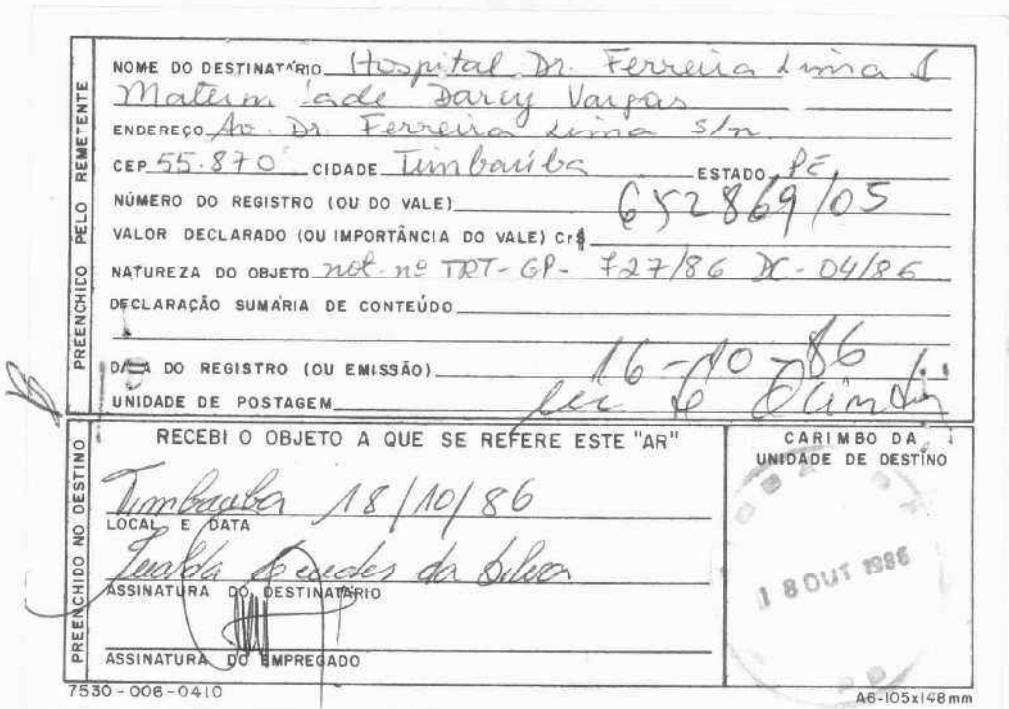 PREENCHIDO PELO REMETENTE
NOME DO DESTINATÁRIO Hospital Dr. Ferreira Lima
Matern ade Darcy Vargas
ENDEREÇO Av. Dr. Ferreira Lima s/n
CEP 55.870 CIDADE Timbaúba ESTADO PE
NÚMERO DO REGISTRO (OU DO VALE) 652869/05
VALOR DECLARADO (OU IMPORTÂNCIA DO VALE) Cr$
NATUREZA DO OBJETO not. nº TRT-GP- 727/86 DC-04/86
DECLARAÇÃO SUMÁRIA DE CONTEÚDO
DATA DO REGISTRO (OU EMISSÃO) 16-10-86
UNIDADE DE POSTAGEM
PREENCHIDO NO DESTINO
RECEBI O OBJETO A QUE SE REFERE ESTE "AR"
Timbaúba 18/10/86
LOCAL E DATA
da Silva
ASSINATURA DO DESTINATÁRIO
ASSINATURA DO EMPREGADO
CARIMBO DA
UNIDADE DE DESTINO
18 OUT 1986
7530-006-0410
A6-105x148mm